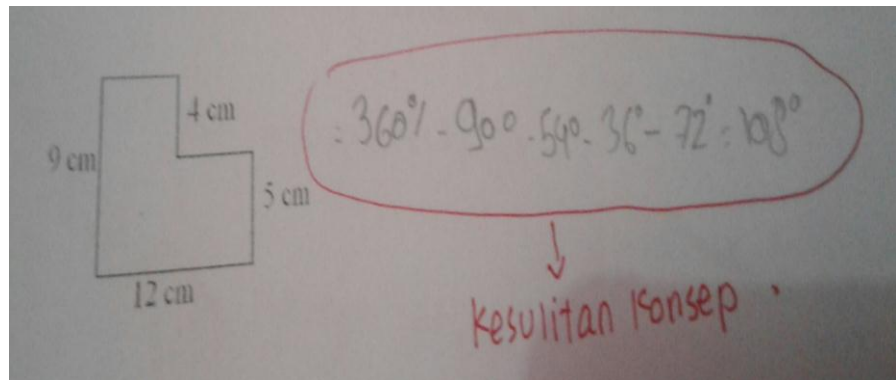 4 cm
9 cm
5 cm
12 cm
= 360° - 90° - 54° - 36° - 72° = 108°
Kesulitan Konsep